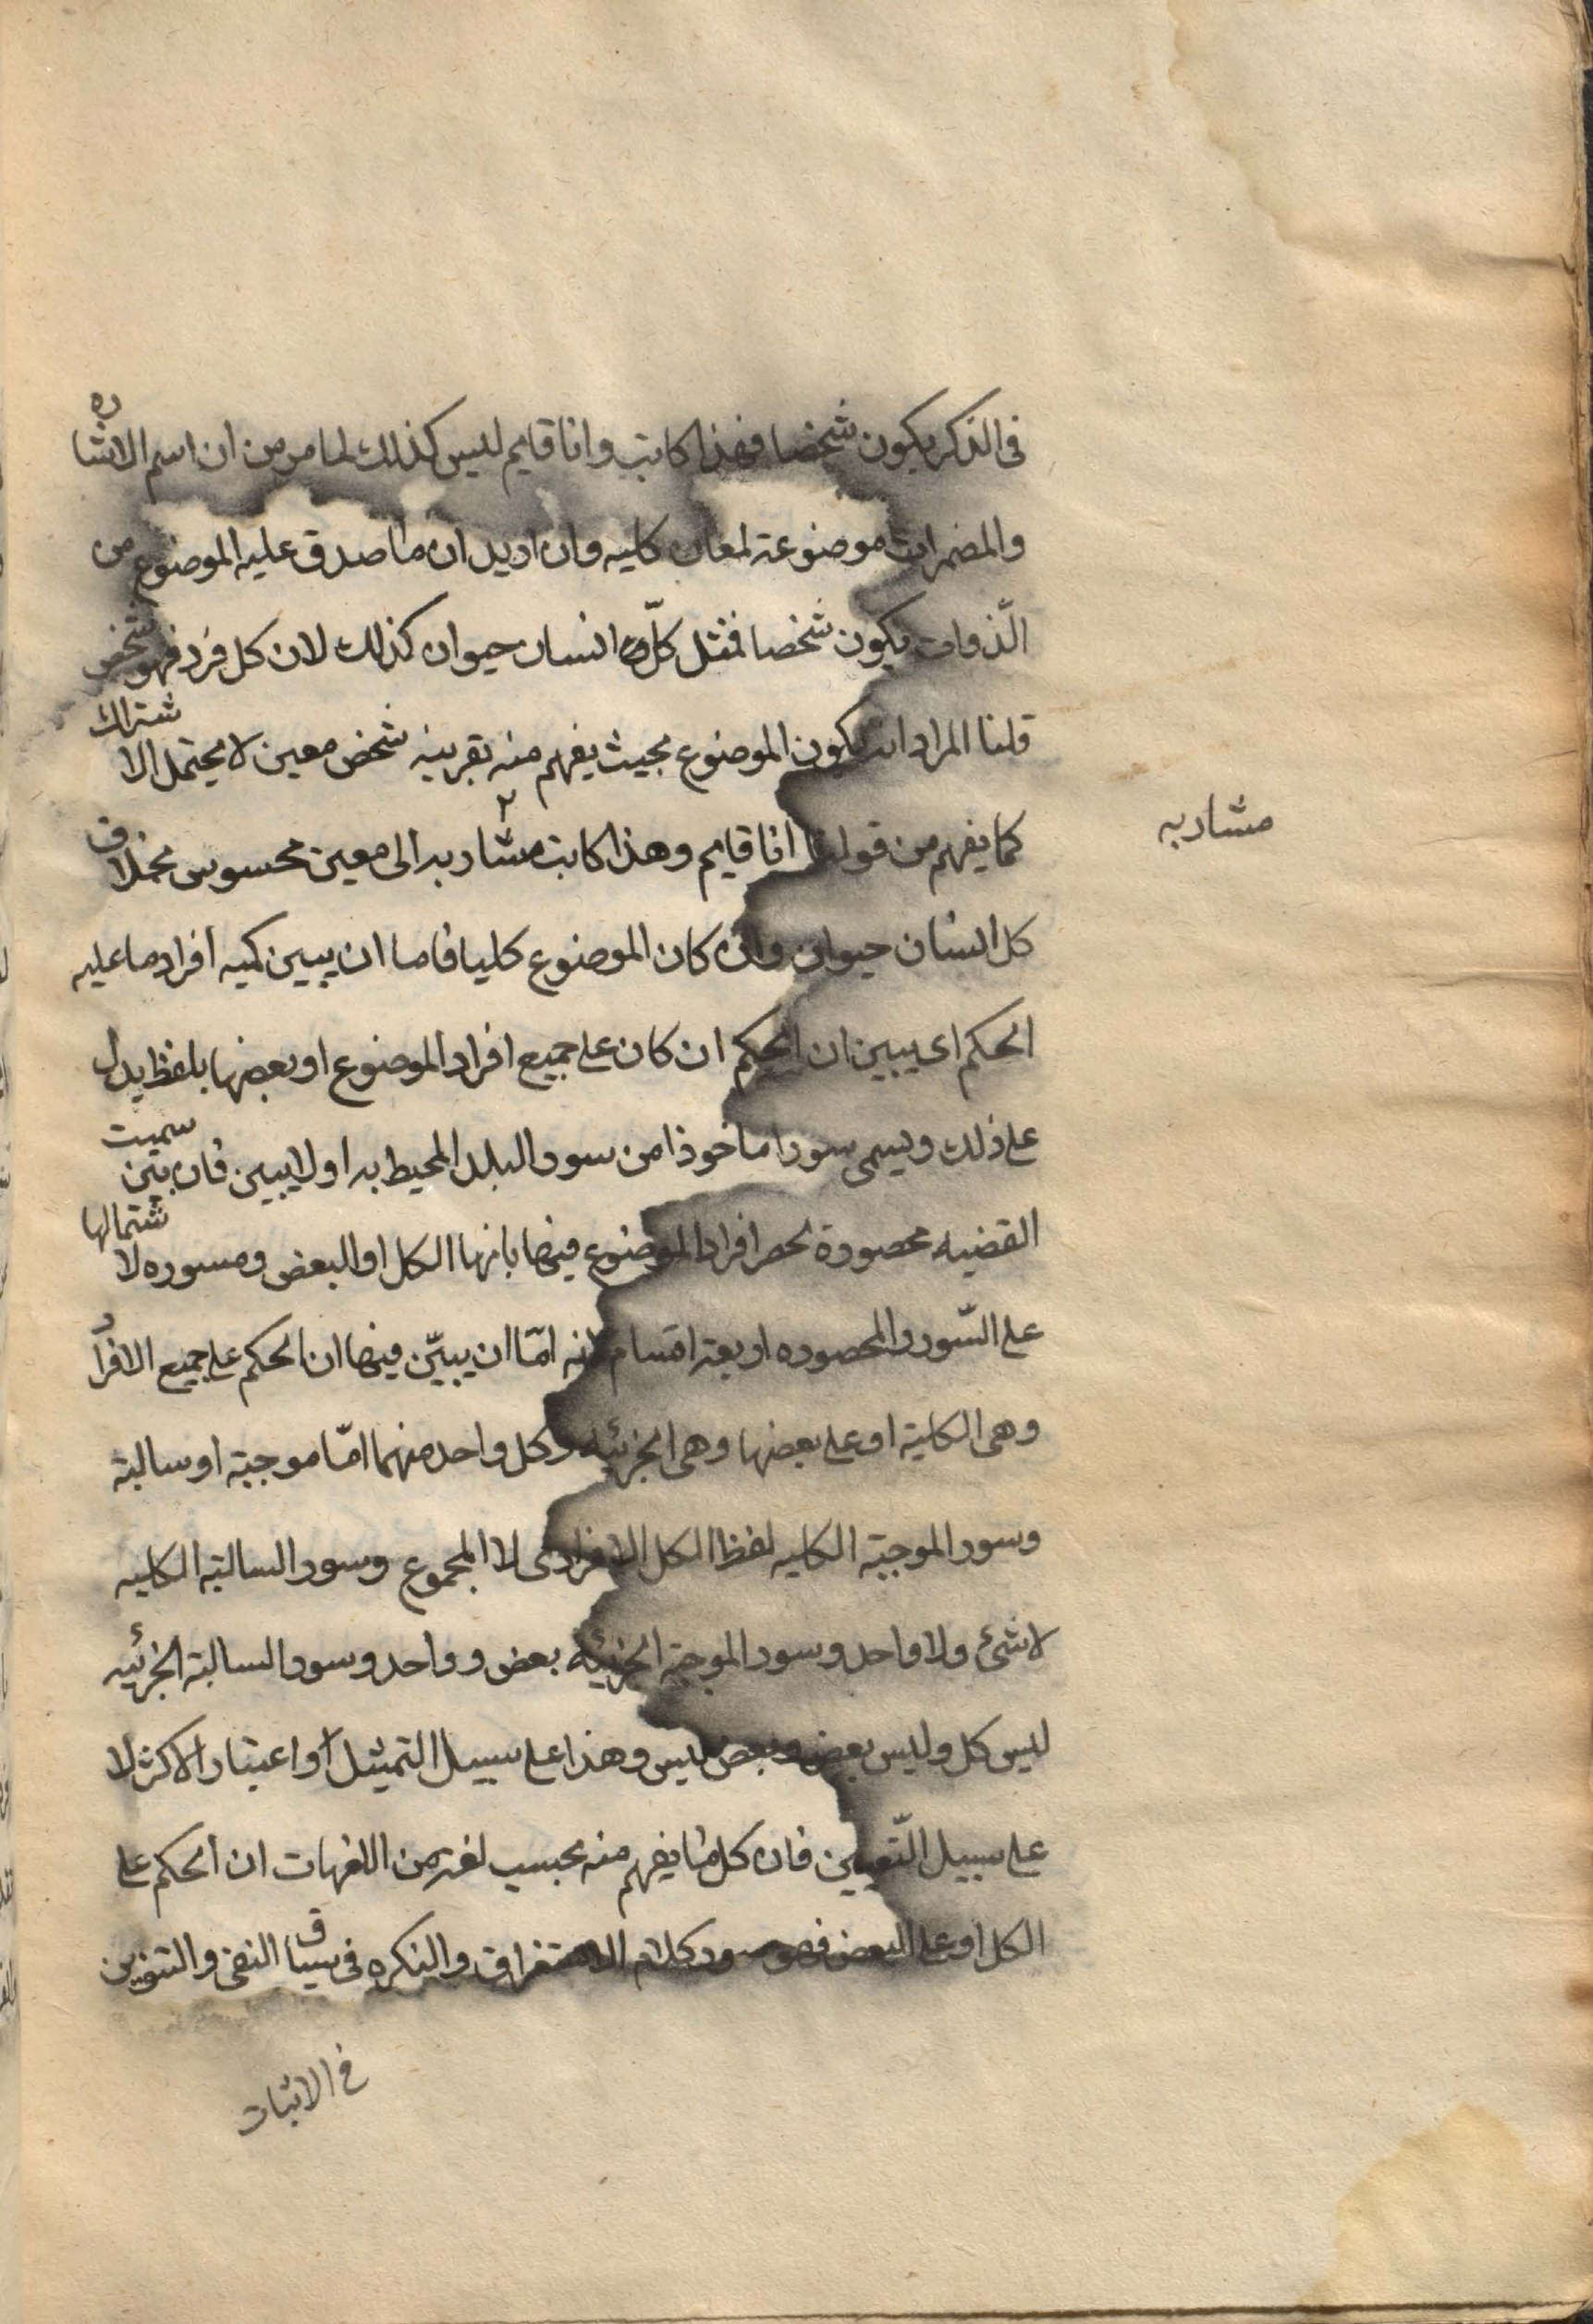 فى الذكر يكون شخصا فهذا كاتب وانا قايم ليس كذلك لما مر من ان اسم الاشاره
والمضمرات موضوعة لمعان كليه وان اريد ان ما صدق عليه الموضوع من
الّذوات يكون شخصا فمثل كلّ انسان حيوان كذلك لان كل فرد فهو شخص
قلنا المراد ان يكون الموضوع بحيث يفهم منه بقرينه شخص معين لا يحتمل الاشتراك
كما يفهم من قولنا انا قايم وهذا كاتب مشار به الى معين محسوس بخلاف
مشار به
كل انسان حيوان وان كان الموضوع كليا فاما ان يبين كميه افراد ما عليه
الحكم اى يبين ان الحكم ان كان على جميع افراد الموضوع او بعضها بلفظ يدل
على ذلك ويسمى سورا ماخوذا من سور البلد المحيط به او لا يبين فان بين سميت
القضيه محصورة لحصر افراد الموضوع فيها بانها الكل او البعض ومسوره لاشتمالها
على السّور والمحصوره اربعة اقسام لانه امّا ان يبيّن فيها ان الحكم على جميع الافراد
وهى الكلية او على بعضها وهى الجزئيه وكل واحد منهما امّا موجبة او سالبة
وسور الموجبة الكليه لفظ الكل الافرادى لا المجموع وسور السالبة الكليه
لا شئ ولا واحد وسور الموجبة الجزئيه بعض وواحد وسور السالبة الجزئيه
ليس كل وليس بعض وبعض ليس وهذا على سبيل التمثيل او اعتبار الاكثر لا
على سبيل التّعيين فان كل ما يفهم منه بحسب لغة من اللغات ان الحكم على
الكل او على البعض فهو سور كلام الاستغراق والنكره فى سياق النفى والتنوين
فى الاثبات